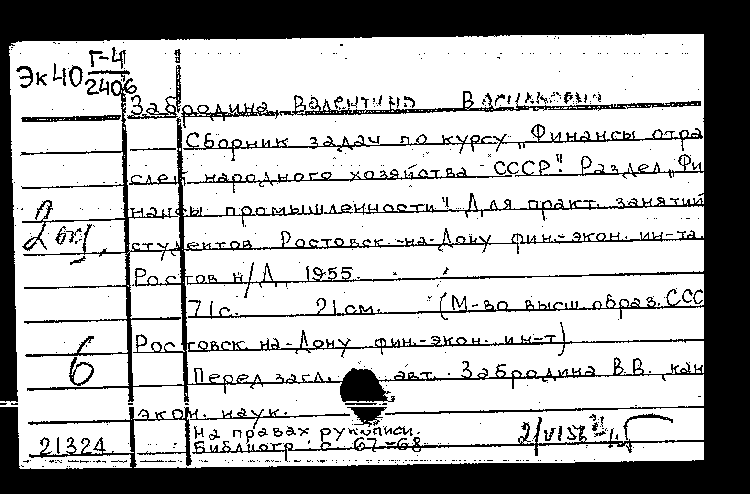 Эк40 Г-4
2406
Забродина, Валентина Васильевна
Сборник задач по курсу „Финансы отра
слей народного хозяйства СССР". Раздел „Фи
нансы промышленности". Для практ. занятий
2
студентов Ростовск.-на-Дону фин.-экон. ин-та.
Ростов н/Д, 1955.
71с. 21см. (М-во высш. образ. ССС
Ростовск. на-Дону фин.-экон. ин-т)
6
Перед загл. авт. Забродина В.В., кан
экон. наук.
На правах рукописи.
21324 Библиогр: с 67-68